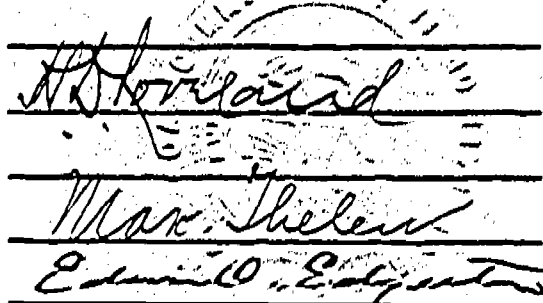 H D Loveland
Max Thelen
Edwin O. Edgerton